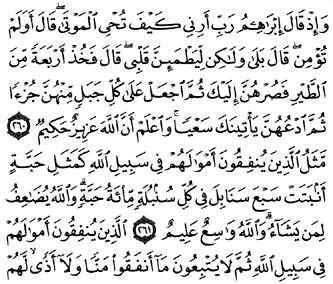 وَإِذْ قَالَ إِبْرَٰهِـۧمُ رَبِّ أَرِنِي كَيْفَ تُحْيِ ٱلْمَوْتَىٰۖ قَالَ أَوَلَمْ
تُؤْمِنۖ قَالَ بَلَىٰ وَلَـٰكِن لِّيَطْمَئِنَّ قَلْبِيۖ قَالَ فَخُذْ أَرْبَعَةً مِّنَ
ٱلطَّيْرِ فَصُرْهُنَّ إِلَيْكَ ثُمَّ ٱجْعَلْ عَلَىٰ كُلِّ جَبَلٍ مِّنْهُنَّ جُزْءًا
ثُمَّ ٱدْعُهُنَّ يَأْتِينَكَ سَعْيًاۚ وَٱعْلَمْ أَنَّ ٱللَّهَ عَزِيزٌ حَكِيمٌ ٢٦٠
مَّثَلُ ٱلَّذِينَ يُنفِقُونَ أَمْوَٰلَهُمْ فِي سَبِيلِ ٱللَّهِ كَمَثَلِ حَبَّةٍ
أَنۢبَتَتْ سَبْعَ سَنَابِلَ فِي كُلِّ سُنۢبُلَةٍ مِّا۟ئَةُ حَبَّةٍۗ وَٱللَّهُ يُضَـٰعِفُ
لِمَن يَشَآءُۗ وَٱللَّهُ وَٰسِعٌ عَلِيمٌ ٢٦١ ٱلَّذِينَ يُنفِقُونَ أَمْوَٰلَهُمْ
فِي سَبِيلِ ٱللَّهِ ثُمَّ لَا يُتْبِعُونَ مَآ أَنفَقُوا۟ مَنًّا وَلَآ أَذًىۙ لَّهُمْ